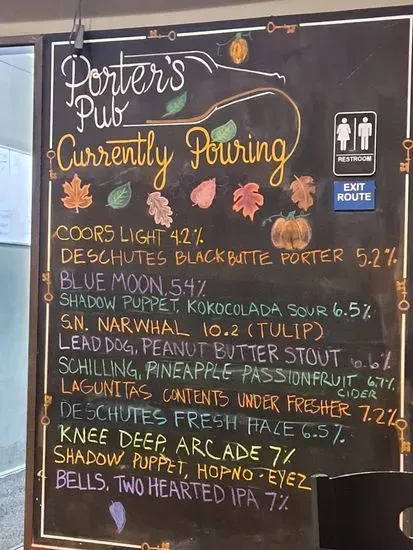 Porter's
Pub
Currently Pouring
RESTROOM
EXIT
ROUTE
COORS LIGHT 4.2%
DESCHUTES BLACK BUTTE PORTER 5.2%
BLUE MOON, 5.4%
SHADOW PUPPET, KOKOCOLADA SOUR 6.5%
S.N. NARWHAL 10.2 (TULIP)
LEAD DOG, PEANUT BUTTER STOUT 6.6%
SCHILLING, PINEAPPLE PASSIONFRUIT 6.7%
CIDER
LAGUNITAS CONTENTS UNDER FRESHER 7.2%
DESCHUTES FRESH HAZE 6.5%
KNEE DEEP, ARCADE 7%
SHADOW PUPPET, HOPNO-EYEZ
BELLS, TWO HEARTED IPA 7%